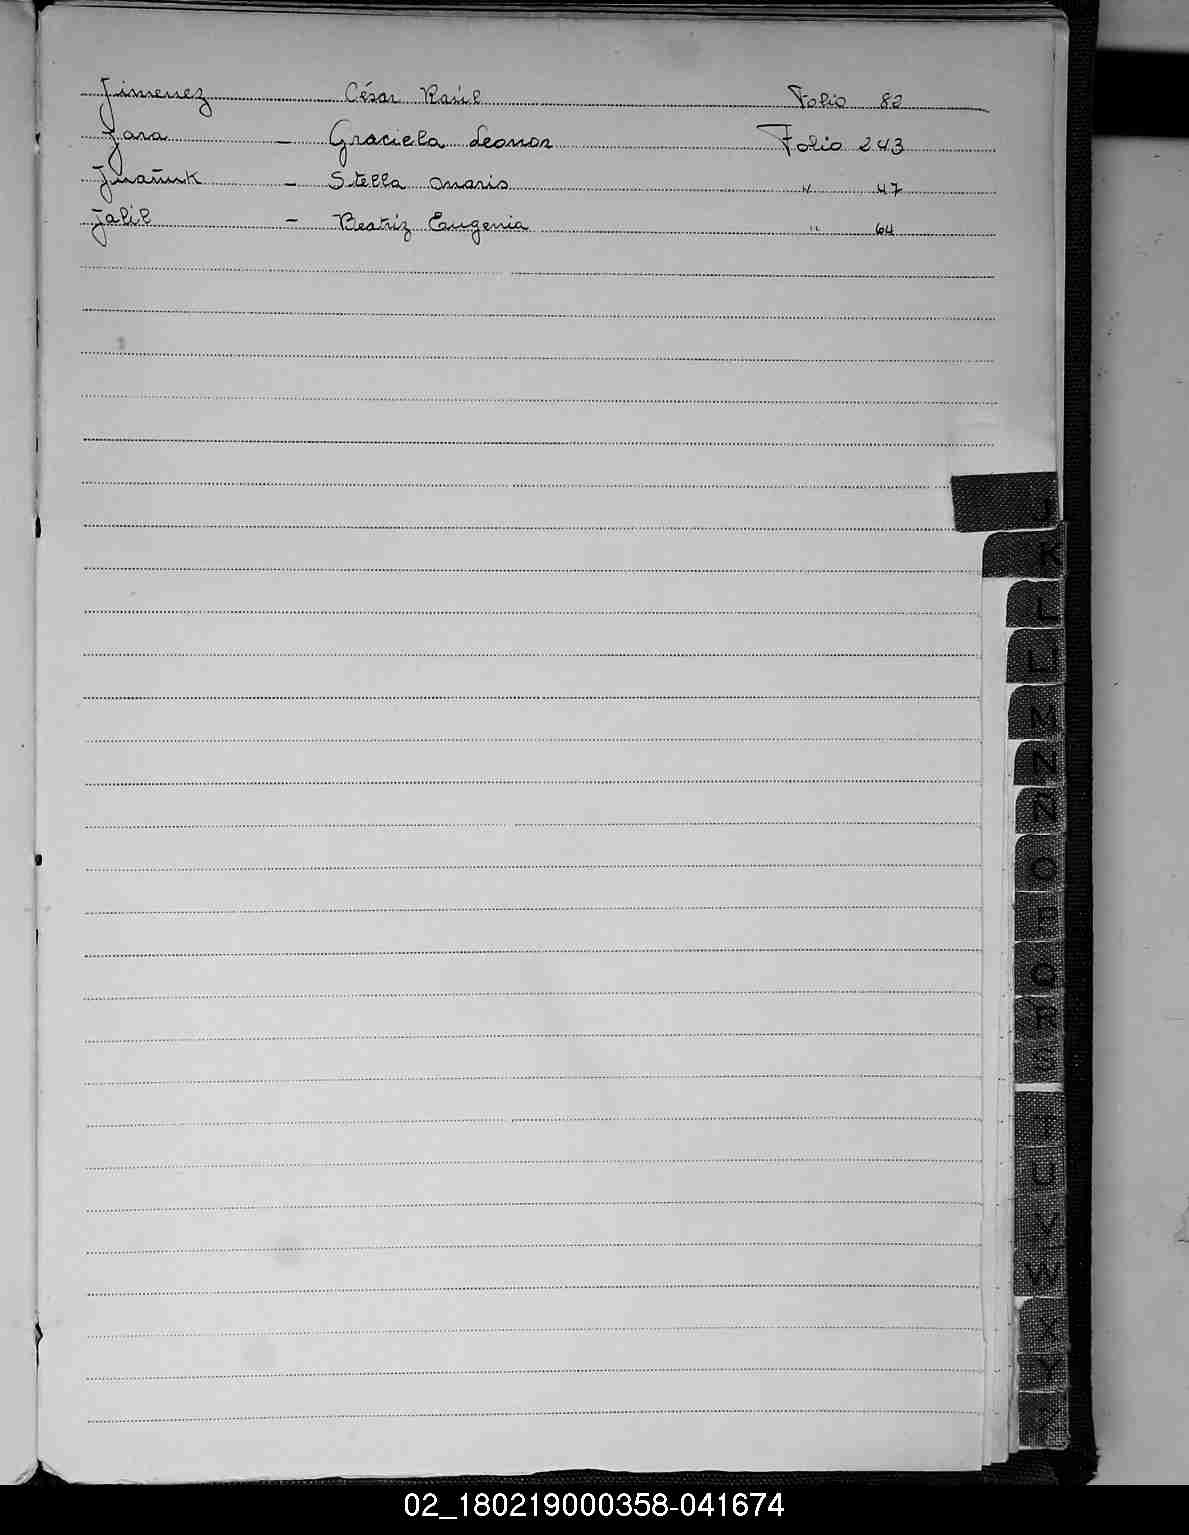 Jimenez César Raúl Folio 82
Jara - Graciela Leonor Folio 243
- Stella Maris " 47
Jalil - Beatriz Eugenia " 64
J
K
L
LL
M
N
Ñ
O
P
Q
R
S
T
U
V
W
X
Y
Z
02_180219000358-041674